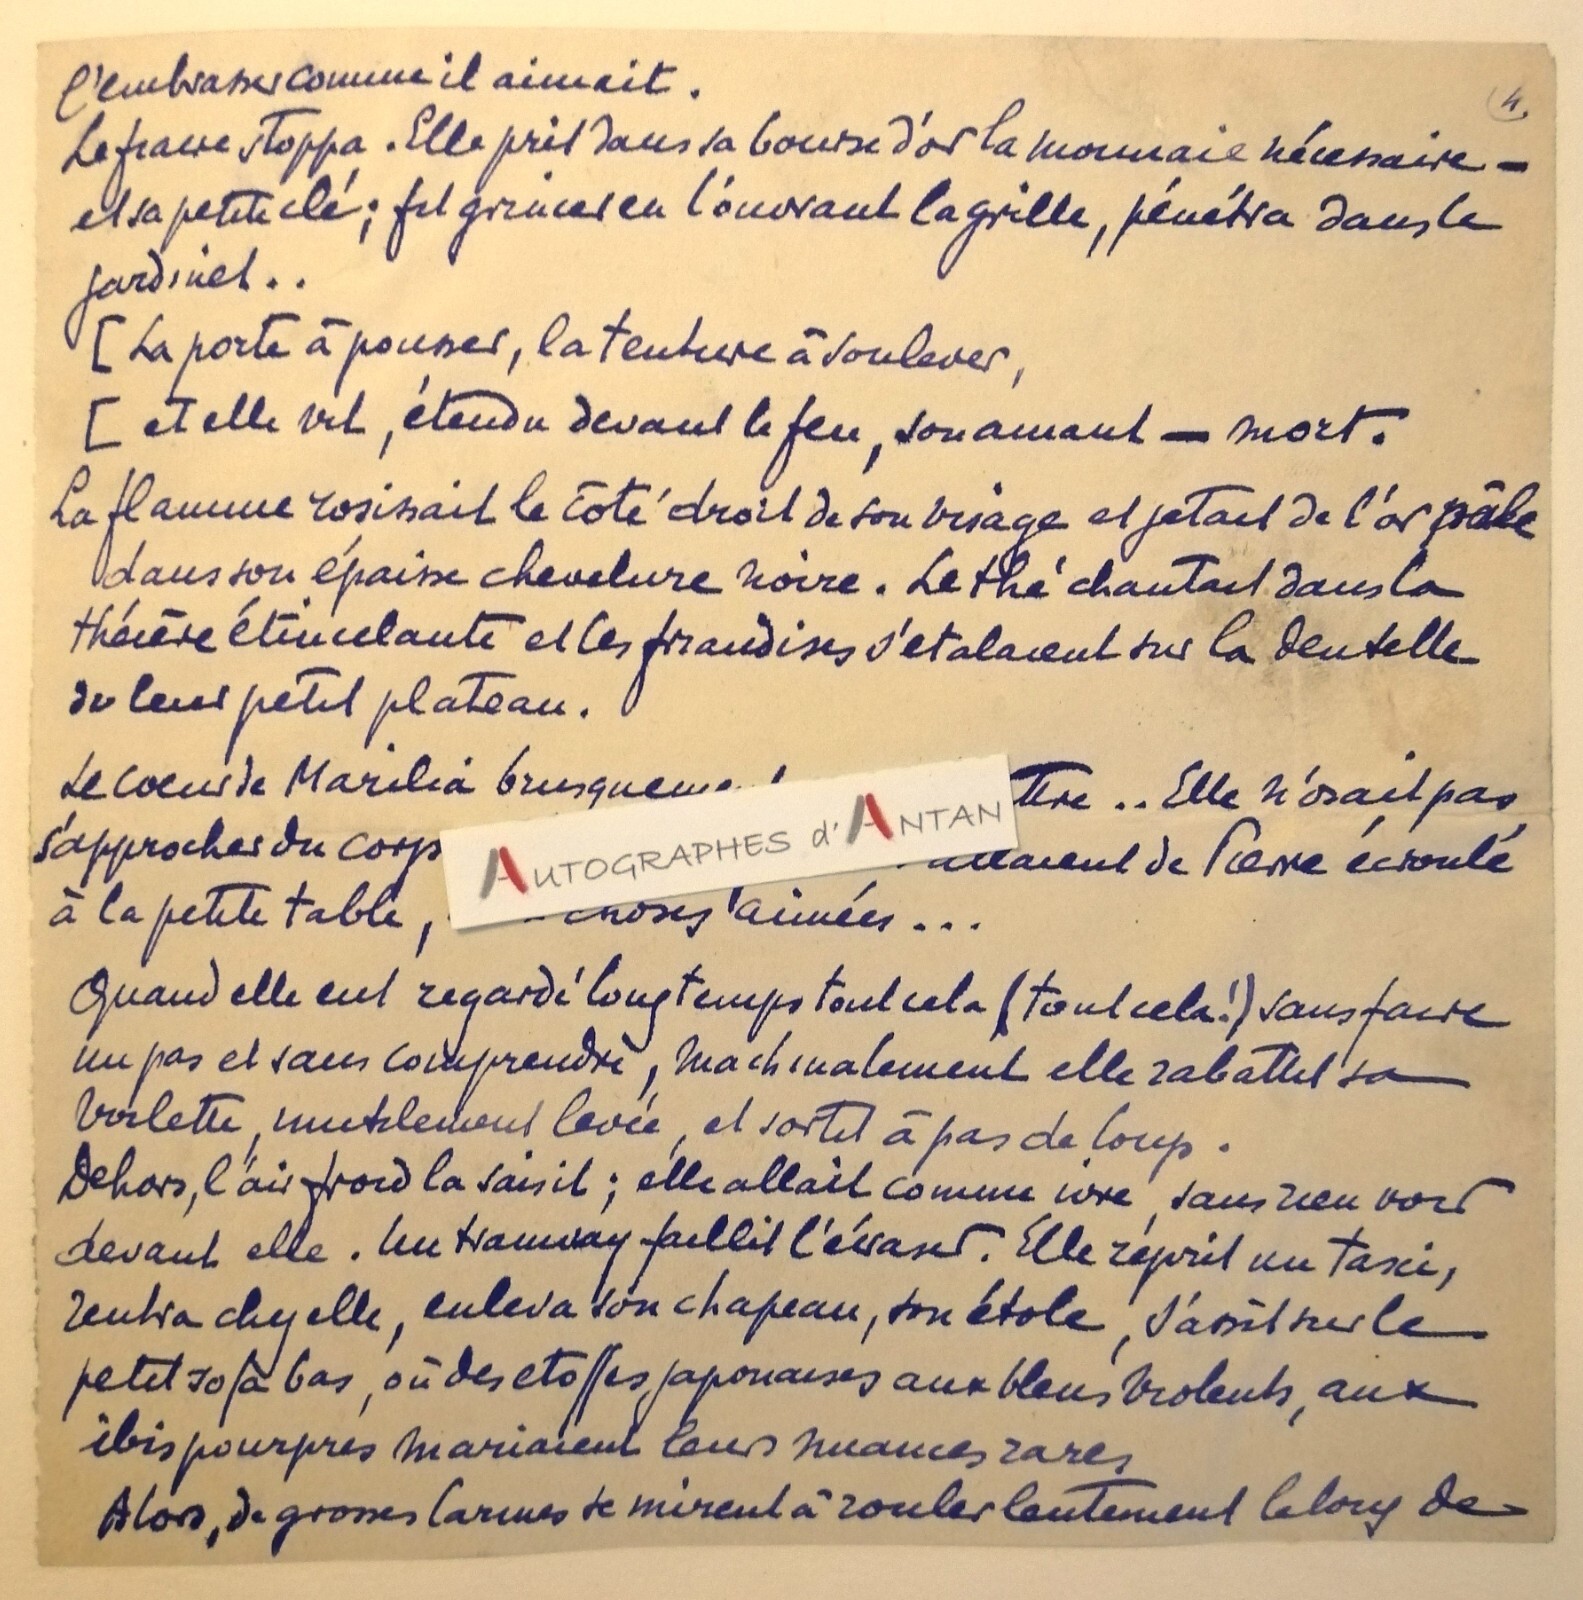 l'embrasser comme il aimait.
4.
Le fiacre stoppa. Elle prit dans sa bourse d'or la monnaie nécessaire –
et sa petite clé ; fit grincer en l'ouvrant la grille, pénétra dans le
jardinet..
[ La porte à pousser, la tenture à soulever,
[ et elle vit, étendu devant le feu, son amant – mort.
La flamme rosissait le côté droit de son visage et jetait de l'or pâle
dans son épaisse chevelure noire. Le thé chantait dans la
théière étincelante et les friandises s'etalaient sur la dentelle
de leur petit plateau.
Le coeur de Marilia brusquement ttre .. Elle n'osait pas
s'approcher du corps allaient de Pierre écroulé
à la petite table, choses aimées ...
AUTOGRAPHES d'ANTAN
Quand elle eut regardé longtemps tout cela (tout cela!) sans faire
un pas et sans comprendre, machinalement elle rabattit sa
voilette, inutilement levée, et sortit à pas de loup.
Dehors, l'air froid la saisit ; elle allait comme ivre, sans rien voir
devant elle. Un tramway faillit l'écraser. Elle reprit un taxi,
rentra chez elle, enleva son chapeau, son étole, s'assit sur le
petit sofa bas, où des etoffes japonaises aux bleus violents, aux
ibis pourpres mariaient leurs nuances rares
Alors, de grosses larmes se mirent à rouler lentement le long de